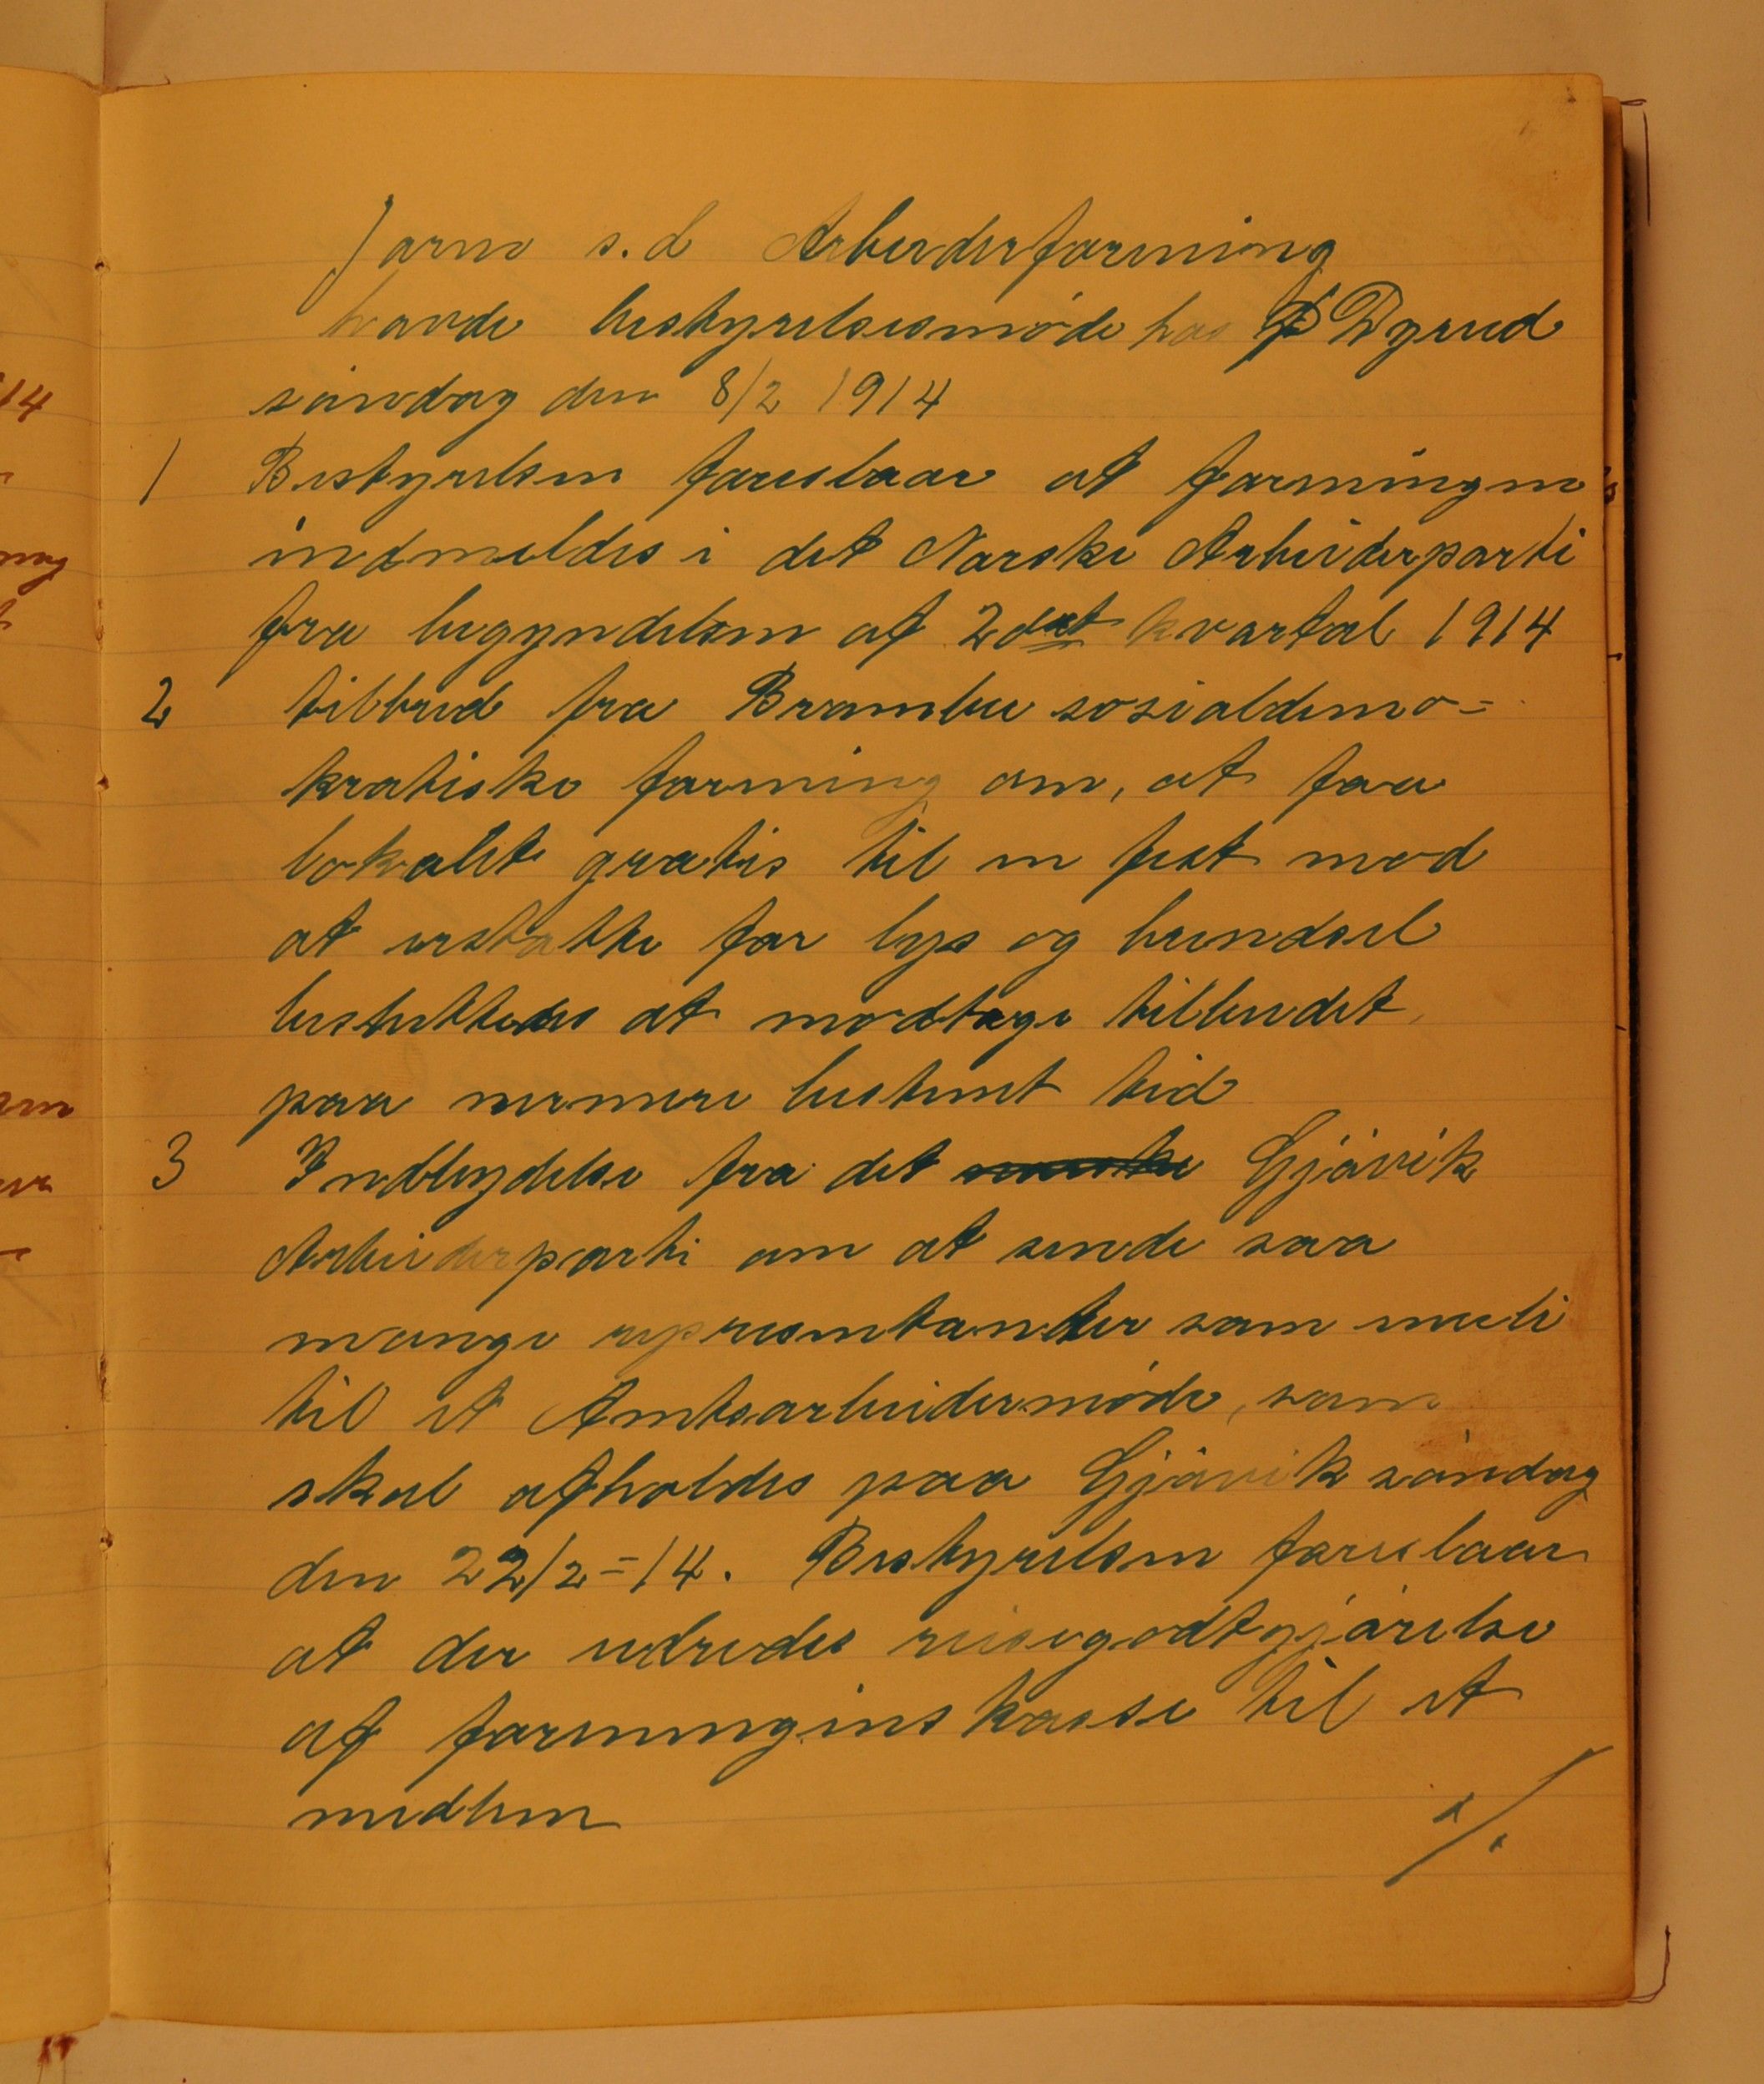 Jarn s.d Arbeiderforening
havde bestyrelsesmöde hos P Dyrud
söndag den 8/2 1914
1 Bestyrelsen foreslaar at foreningen
indmeldes i det Norske Arbeiderparti
fra begyndelsen af 2det kvartal 1914
2 tilbud fra Brandbu sosialdemo=
kratiske forening om, at faa
lokalet gratis til en fest mod
at erstatte for lys og brendsel
besluttedes at modtage tilbudet
paa nermere bestemt tid
3 Indbydelse fra det Gjövik
Arbeiderparti om at sende saa
mange representanter som muli
til et Amtsarbeidermöde, som
skal afholdes paa Gjövik söndag
den 22/2=14. Bestyrelsen foreslaar
at der udredes reisegodtgjörelse
af foreningens kasse til et
medlem
./.
14